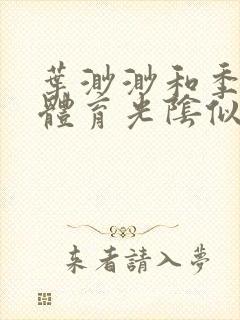 葉渺渺和季
體育光陰似
来者請入夢